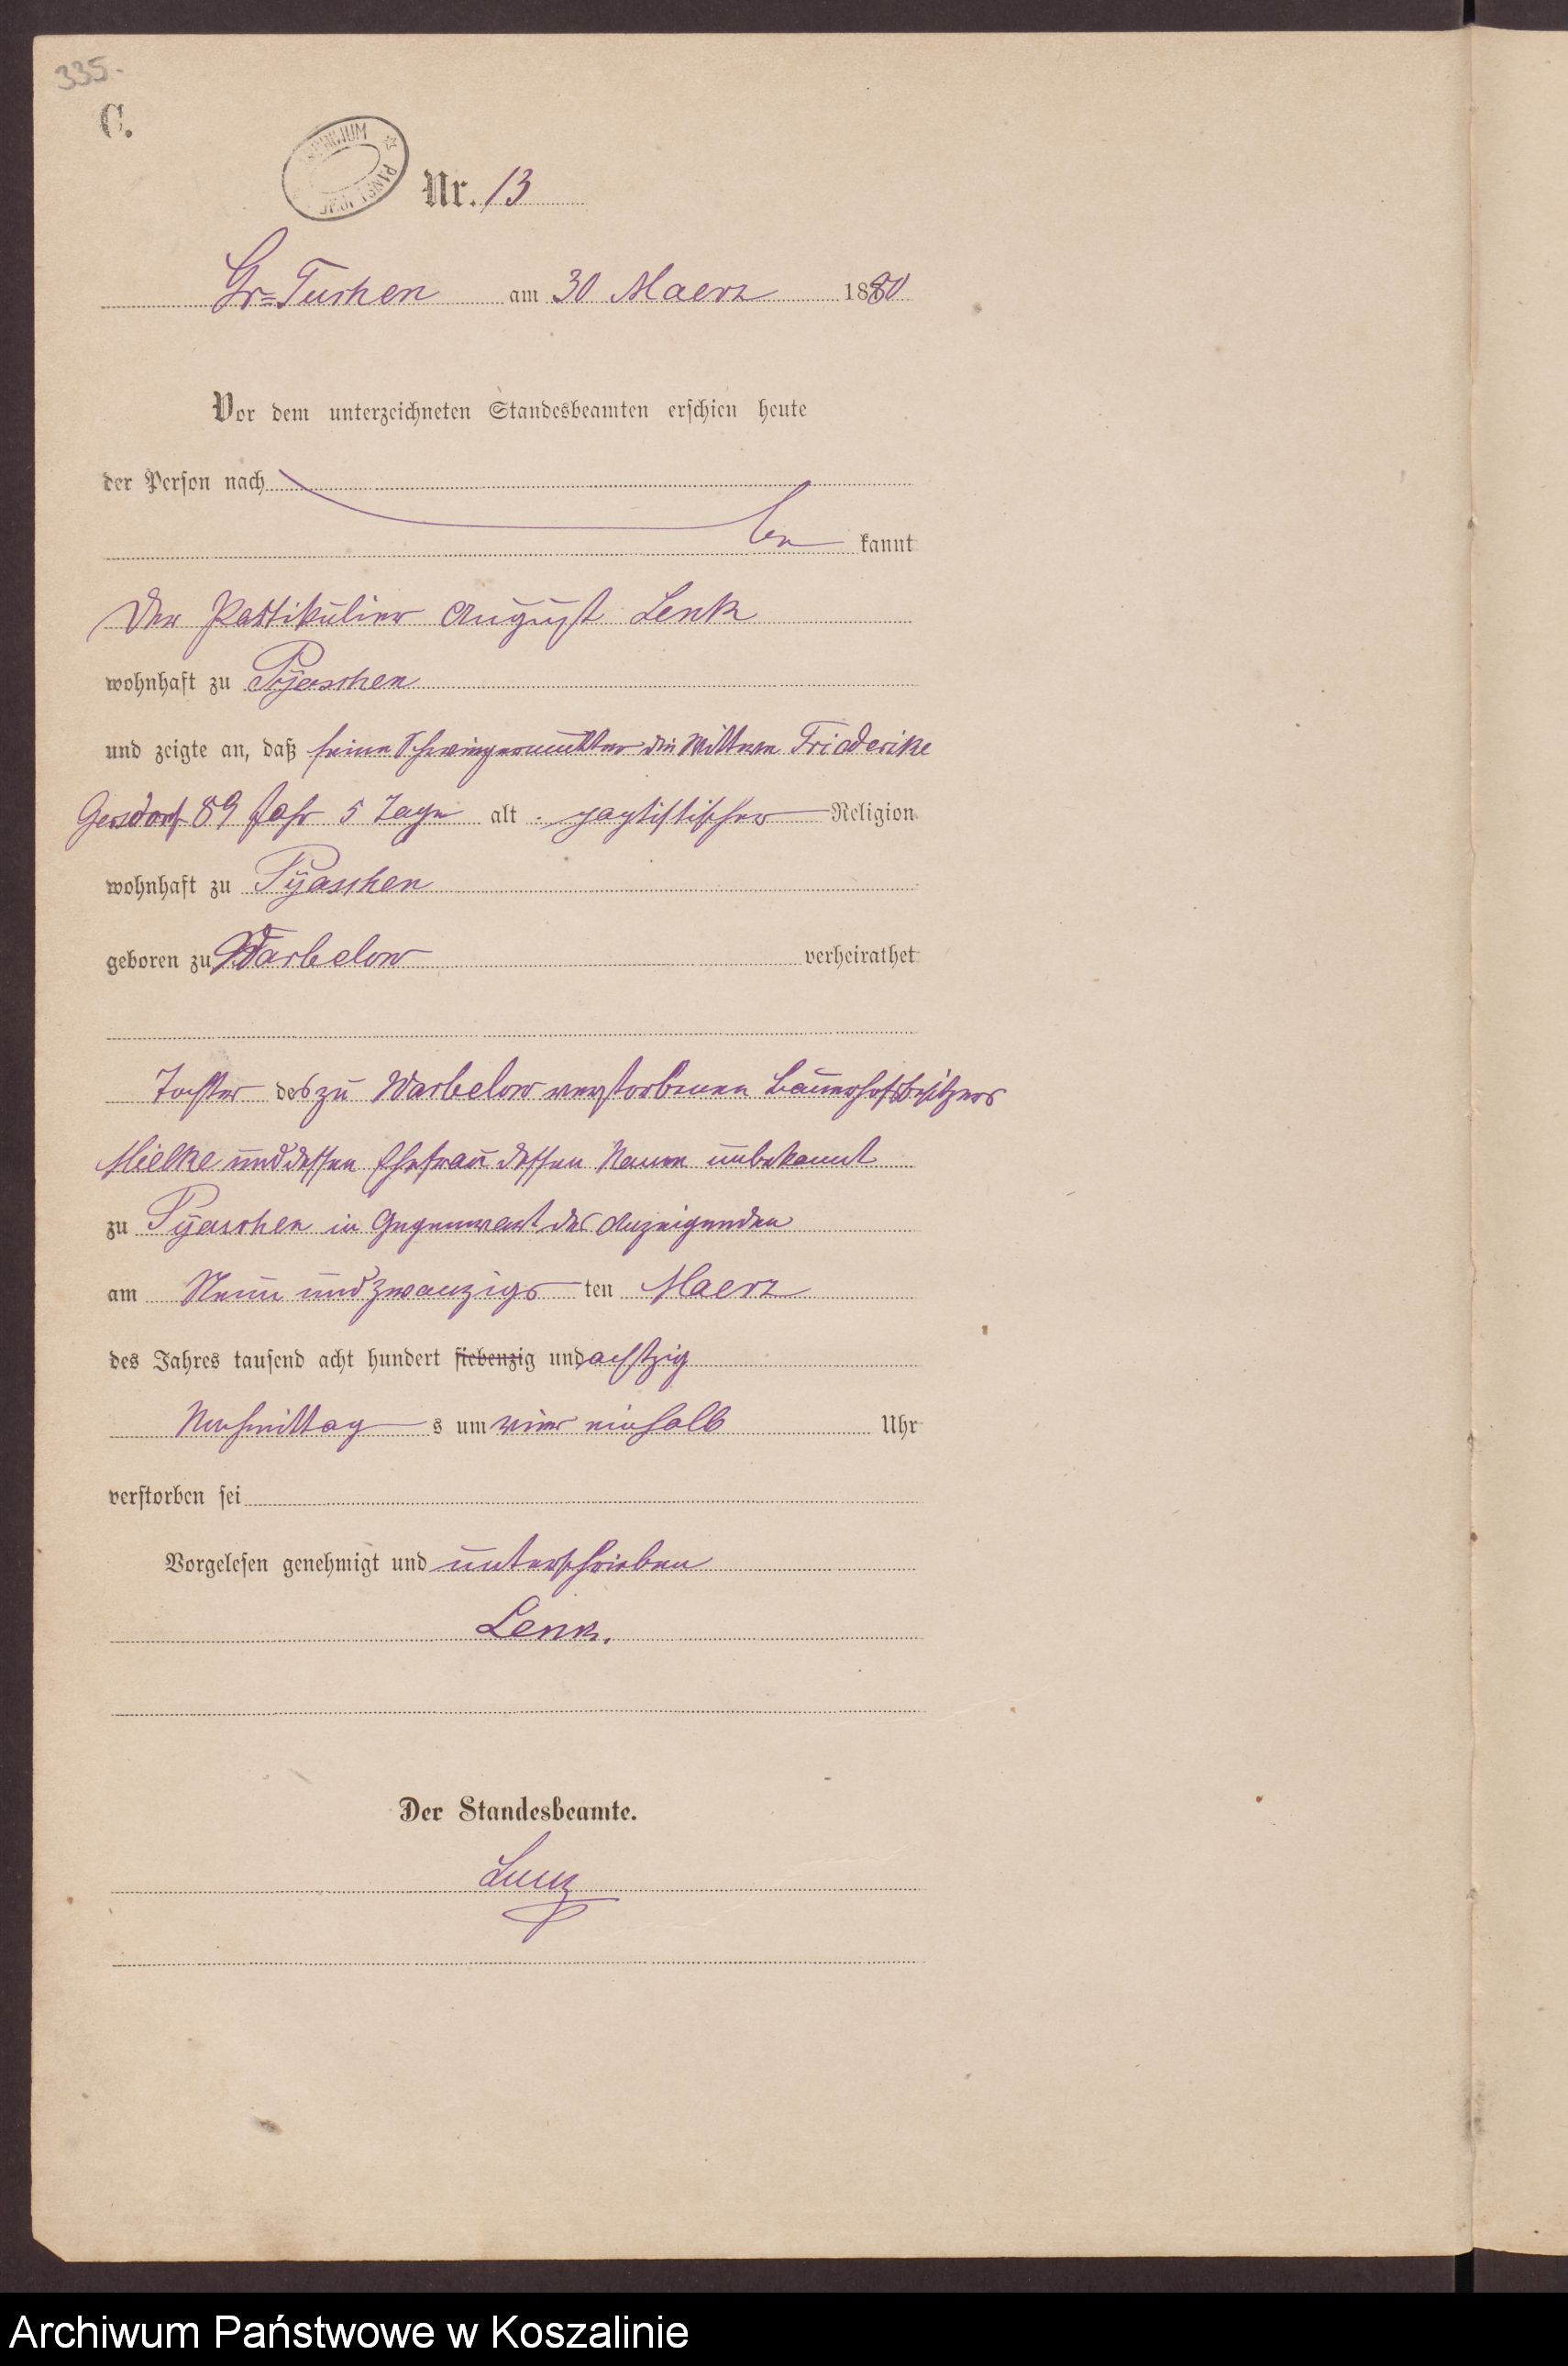 335.
C.
ARCHIWUM PAŃSTWOWE
Nr. 13
Gr=Tuchen am 30 Maerz 1880
Vor dem unterzeichneten Standesbeamten erschien heute
der Person nach
be kannt
Der Partikulier August Lenk
wohnhaft zu Pyaschen
und zeigte an, daß seine Schwiegermutter die Wittwe Friederike
Gersdorf 89 Jahr 5 Tage alt Religion
wohnhaft zu Pyaschen
geboren zu Warbelow verheirathet
Tochter des zu Warbelow verstorbenen Bauerhofsbesitzers
Mielke und dessen Ehefrau dessen Name unbekannt
zu Pyaschen in Gegenwart des Anzeigenden
am Neun und zwanzigs ten Maerz
des Jahres tausend acht hundert siebenzig und achtzig
Nachmittag s um vier einhalb Uhr
verstorben sei
Vorgelesen genehmigt und unterschrieben
Lenk.
Der Standesbeamte.
Archiwum Państwowe w Koszalinie